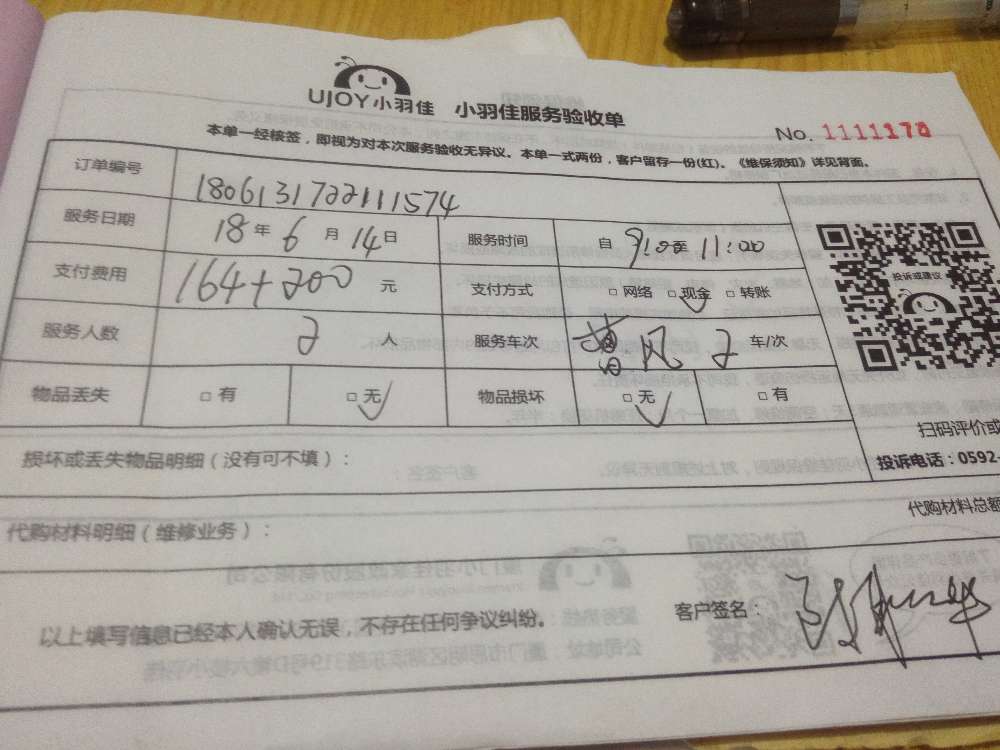 UJOY小羽佳 小羽佳服务验收单
No. 1111178
本单一经核签，即视为对本次服务验收无异议。本单一式两份，客户留存一份(红)。《维保须知》详见背面。
订单编号 1806131722111574
服务日期 18 年 6 月 14 日 服务时间 自 9:00 至 11:00
支付费用 164+200 元 支付方式 □ 网络 □ 现金 □ 转账
投诉或建议
服务人数 2 人 服务车次 2 车/次
物品丢失 □ 有 □ 无 物品损坏 □ 无 □ 有
扫码评价或
损坏或丢失物品明细（没有可不填）：
投诉电话：0592-
代购材料明细（维修业务）：
代购材料总额
以上填写信息已经本人确认无误，不存在任何争议纠纷。
客户签名：